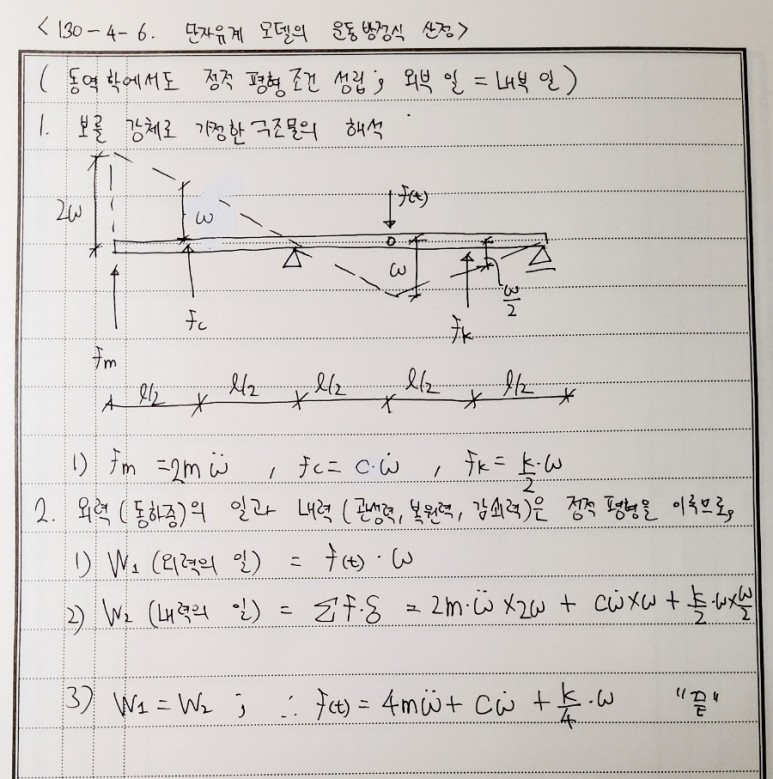 <130-4-6. 단자유계 모델의 운동방정식 산정>
( 동역학에서도 정적 평형조건 성립; 외부 일 = 내부 일 )
1. 보를 강체로 가정한 구조물의 해석
2ω ω f(t)
ω ω/2
fm fc fk
l/2 l/2 l/2 l/2 l/2
1) fm = 2mω̈ , fc = c·ω̇ , fk = k/2·ω
2. 외력(동하중)의 일과 내력(관성력, 복원력, 감쇠력)은 정적 평형을 이루므로,
1) W1 (외력의 일) = f(t)·ω
2) W2 (내력의 일) = ΣF·δ = 2m·ω̈×2ω + cω̇×ω + k/2·ω×ω/2
3) W1 = W2 ; ∴ f(t) = 4mω̈ + cω̇ + k/4·ω "끝"